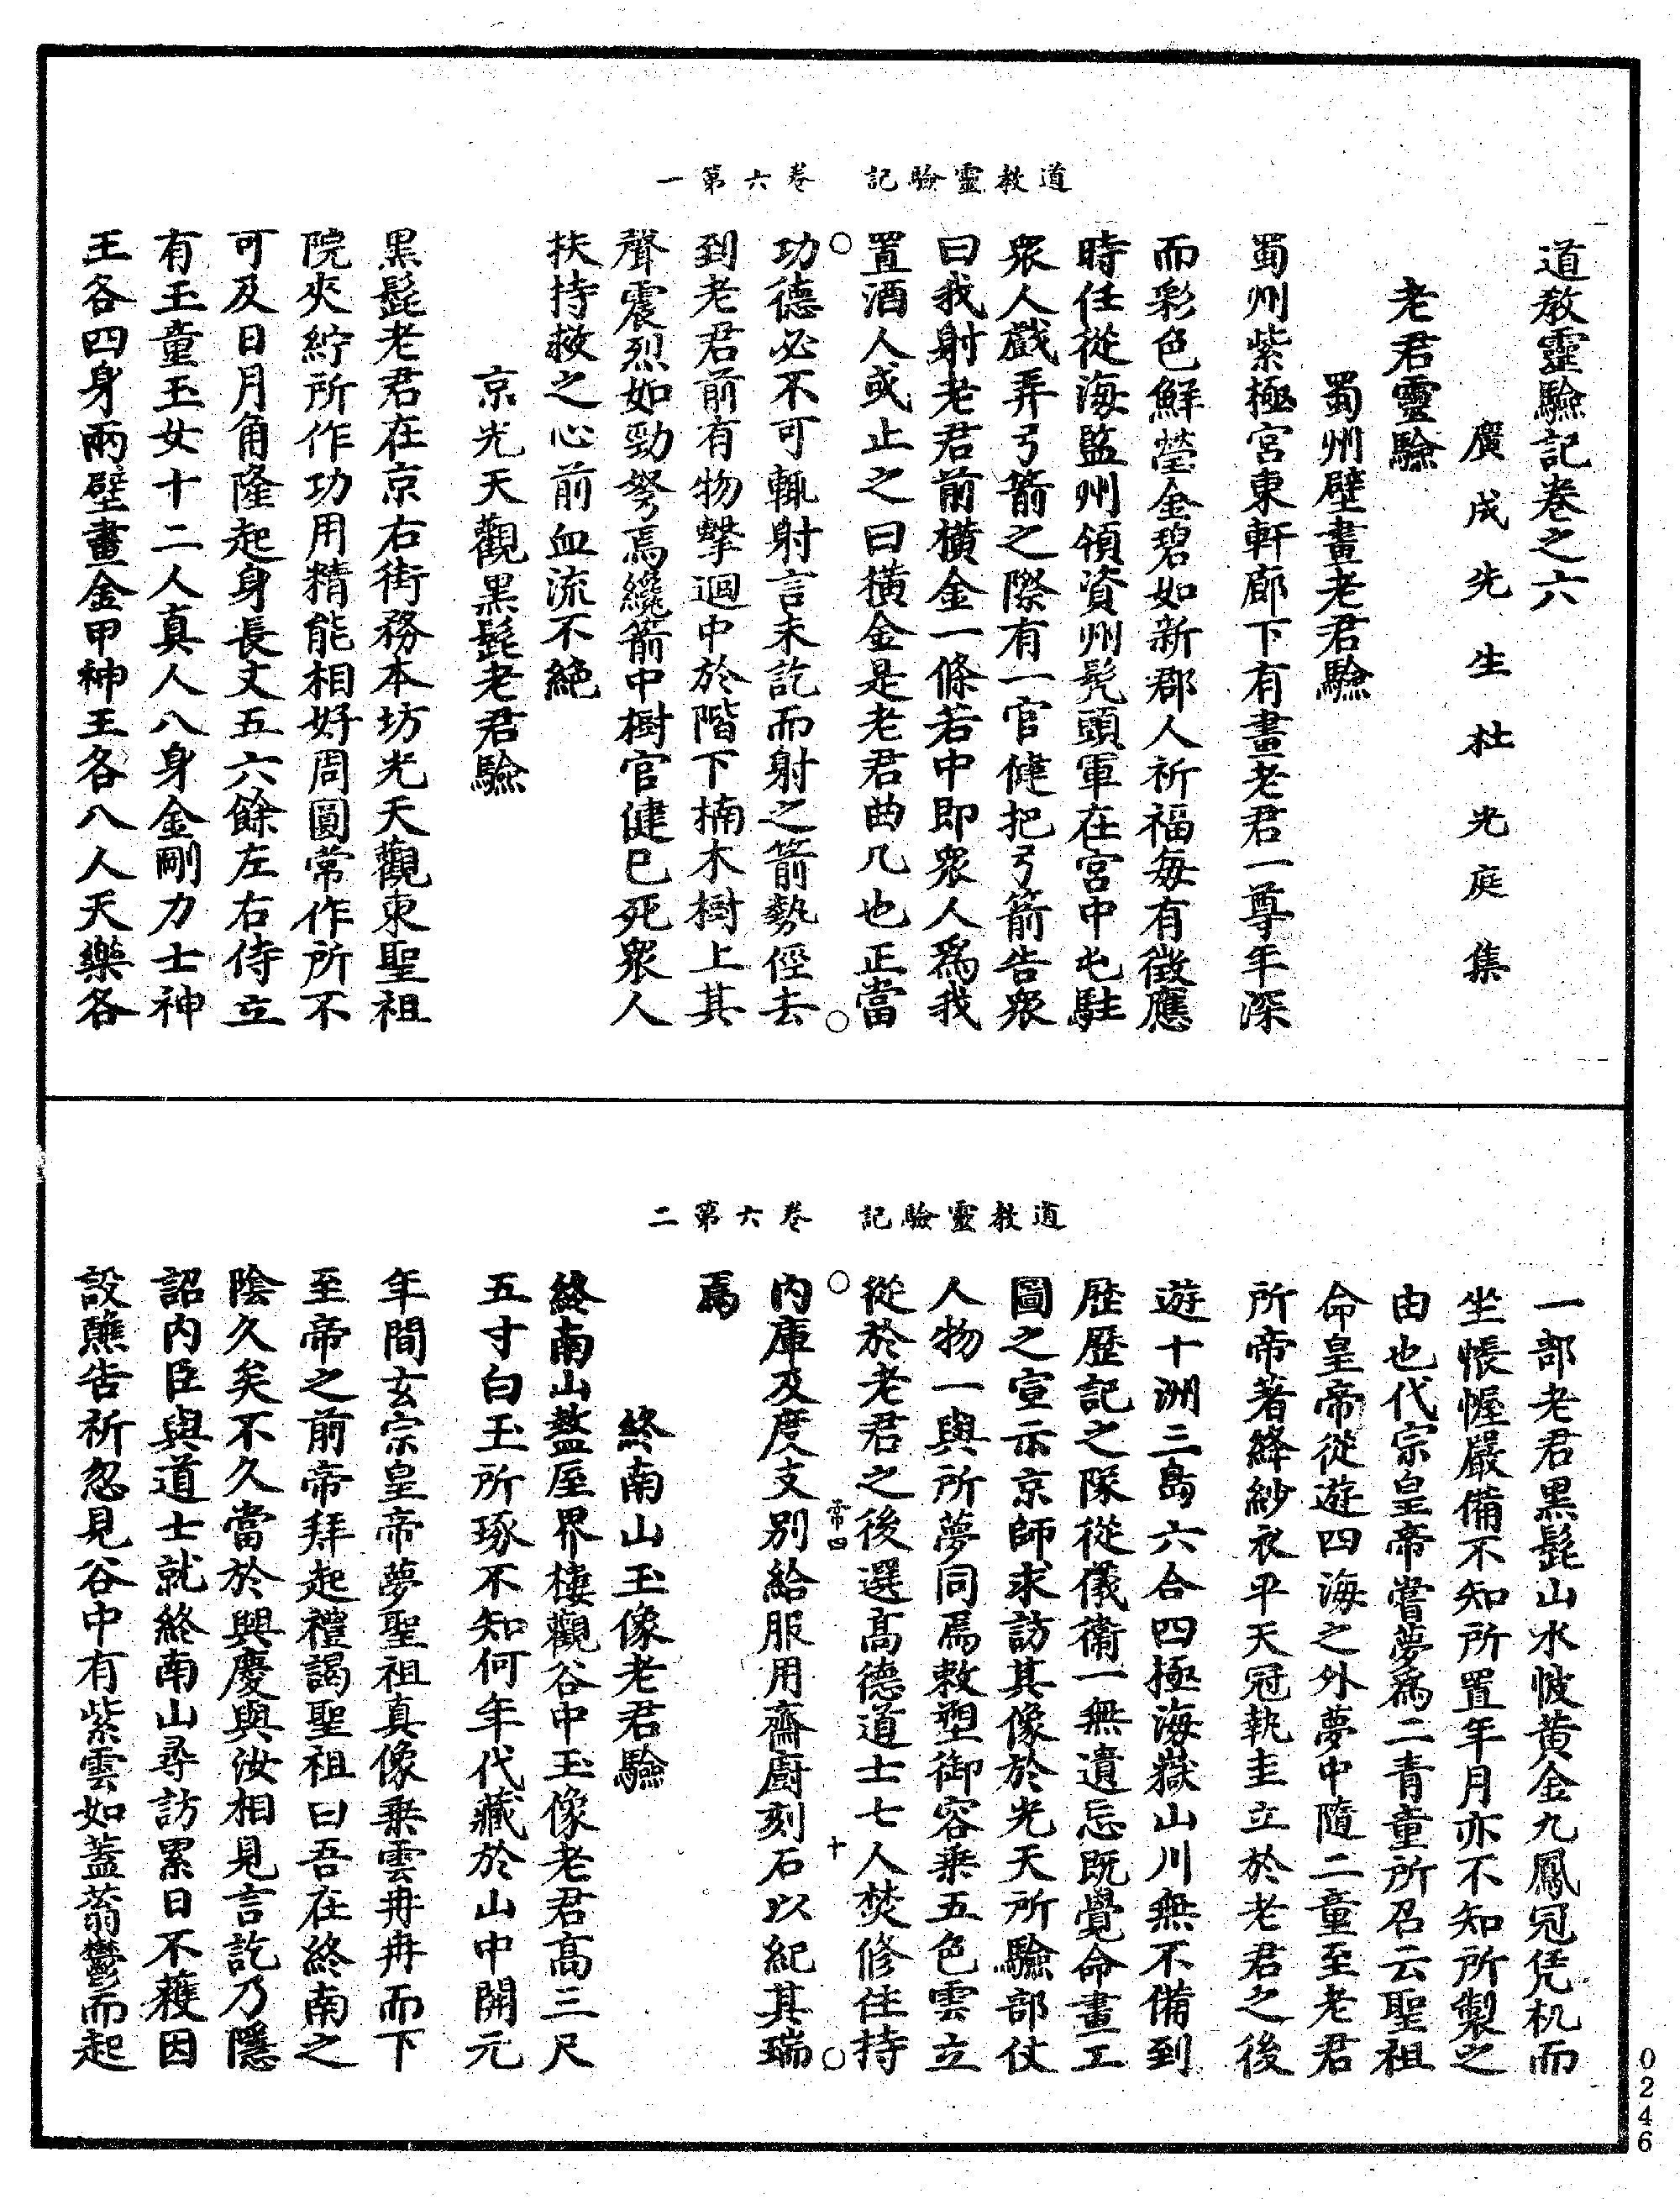 道教靈驗記　卷六第一
道教靈驗記卷之六
廣成先生杜光庭集
老君靈驗
蜀州壁畫老君驗
蜀州紫極宮東軒廊下有畫老君一尊年深
而彩色鮮瑩金碧如新郡人祈福每有徵應
時任從海監州領資州髠頭軍在宮中屯駐
衆人戲弄弓箭之際有一官健把弓箭告衆
曰我射老君前橫金一條若中即衆人爲我
置酒人或止之曰橫金是老君曲几也正當
功德必不可輒射言未訖而射之箭勢俓去
到老君前有物擊迴中於階下楠木樹上其
聲震烈如勁弩焉纔箭中樹官健已死衆人
扶持救之心前血流不絶
京光天觀黑髭老君驗
黑髭老君在京右街務本坊光天觀東聖祖
院夾紵所作功用精能相好周圓常作所不
可及日月角隆起身長丈五六餘左右侍立
有玉童玉女十二人真人八身金剛力士神
王各四身兩壁畫金甲神王各八人天樂各
道教靈驗記　卷六第二
一部老君黑髭山水帔黃金九鳳冠凭机而
坐帳幄嚴備不知所置年月亦不知所製之
由也代宗皇帝嘗夢爲二青童所召云聖祖
命皇帝從遊四海之外夢中隨二童至老君
所帝著絳紗衣平天冠執圭立於老君之後
遊十洲三島六合四極海嶽山川無不備到
歷歷記之隊從儀衞一無遺忘既覺命畫工
圖之宣示京師求訪其像於光天所驗部仗
人物一與所夢同焉敕塑御容乘五色雲立
從於老君之後選高德道士七人焚修住持
常四　十
内庫及度支別給服用齋廚刻石以紀其瑞
焉
終南山玉像老君驗
終南山盩厔界樓觀谷中玉像老君高三尺
五寸白玉所琢不知何年代藏於山中開元
年間玄宗皇帝夢聖祖真像乘雲冉冉而下
至帝之前帝拜起禮謁聖祖曰吾在終南之
陰久矣不久當於興慶與汝相見言訖乃隱
詔内臣與道士就終南山尋訪累日不獲因
設醮告祈忽見谷中有紫雲如蓋蓊鬱而起
0246